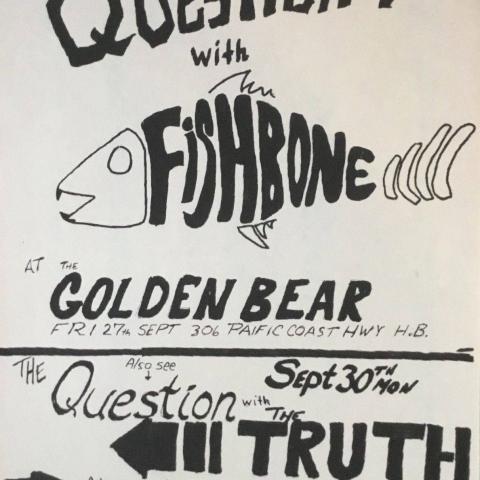 QUESTION?
with
FISHBONE
AT THE
GOLDEN BEAR
FRI 27th SEPT 306 PAIFIC COAST HWY H.B.
THE Also see Sept 30TH MON
Question with THE
TRUTH